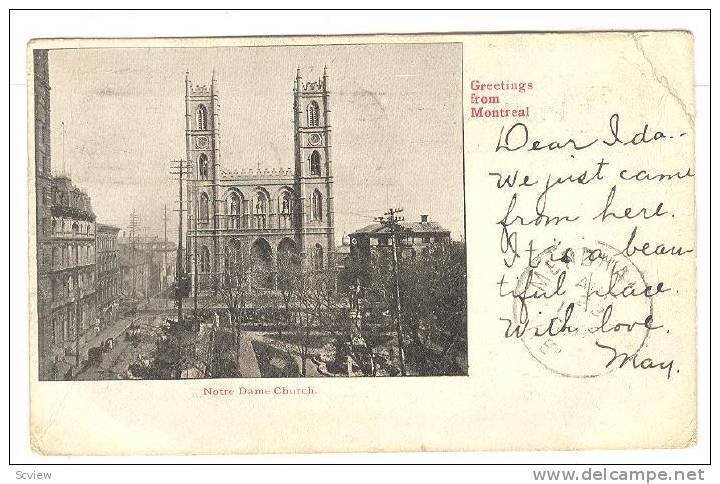 Greetings
from
Montreal
Dear Ida..
We just came
from here.
It is a beau-
tiful place.
With love.
May.
Notre Dame Church.
Scview
www.delcampe.net